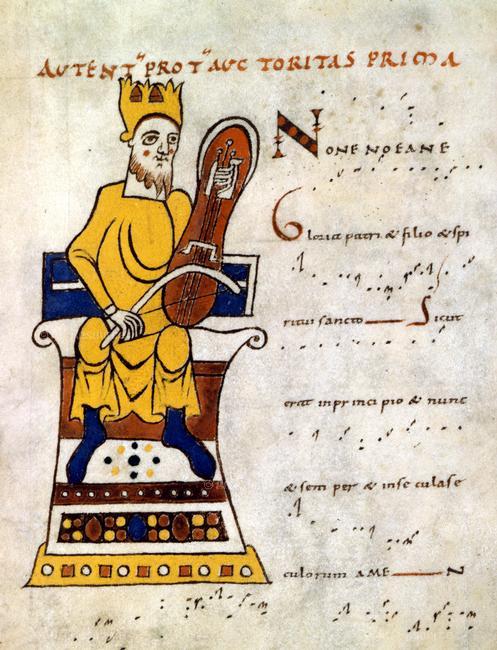 AUTENT' PROT' AUC TORITAS PRIMA
NONENOEANE
Gloria patri & filio & spi
ritui sancto Sicut
erat inprincipio & nunc
& sem per & inse culase
culorum AMEN